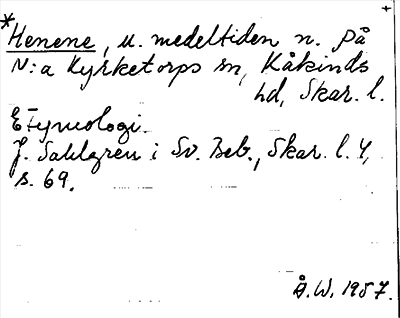 +
*Henene, u. medeltiden n. på
N:a Kyrketorps sn, Kåkinds
hd, Skar. l.
Etymologi.
J. Sahlgren i Sv. Beb., Skar. l. 4,
s. 69.
Å.W. 1987.